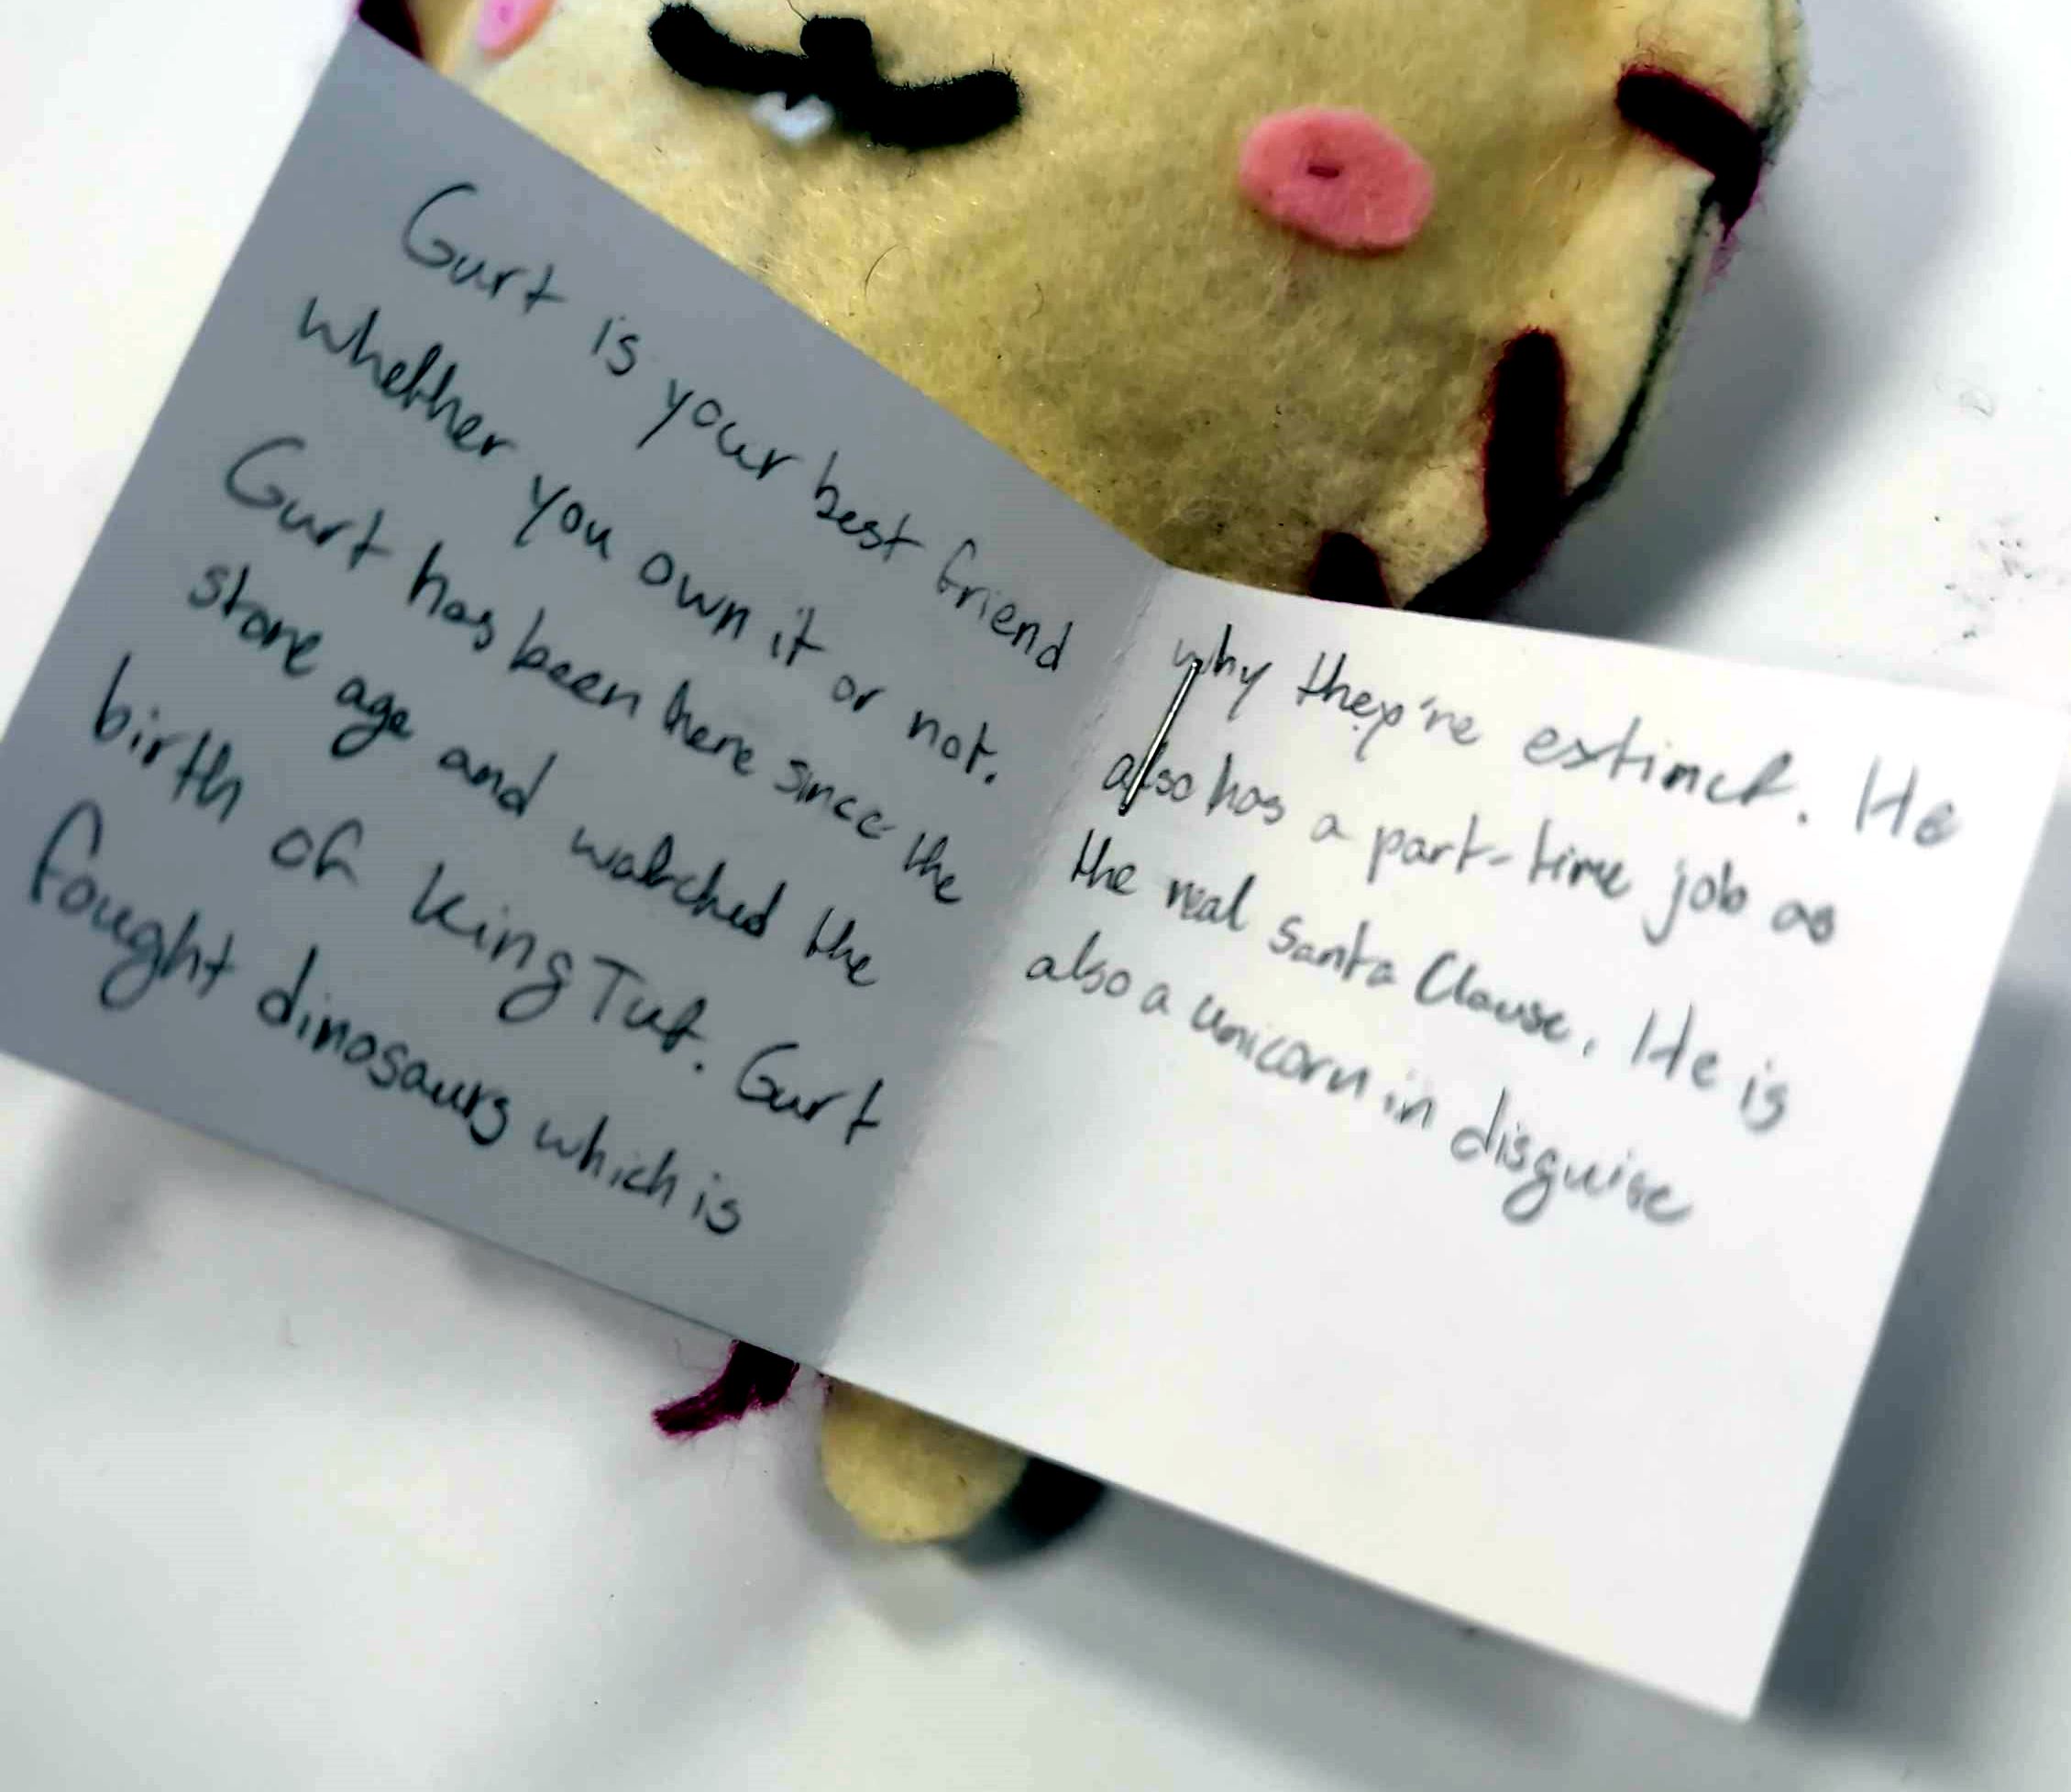 Gurt is your best friend
whether you own it or not.
Gurt has been here since the
stone age and watched the
birth of King Tut. Gurt
fought dinosaurs which is
why they're extinct. He
also has a part-time job as
the real Santa Clause. He is
also a unicorn in disguise